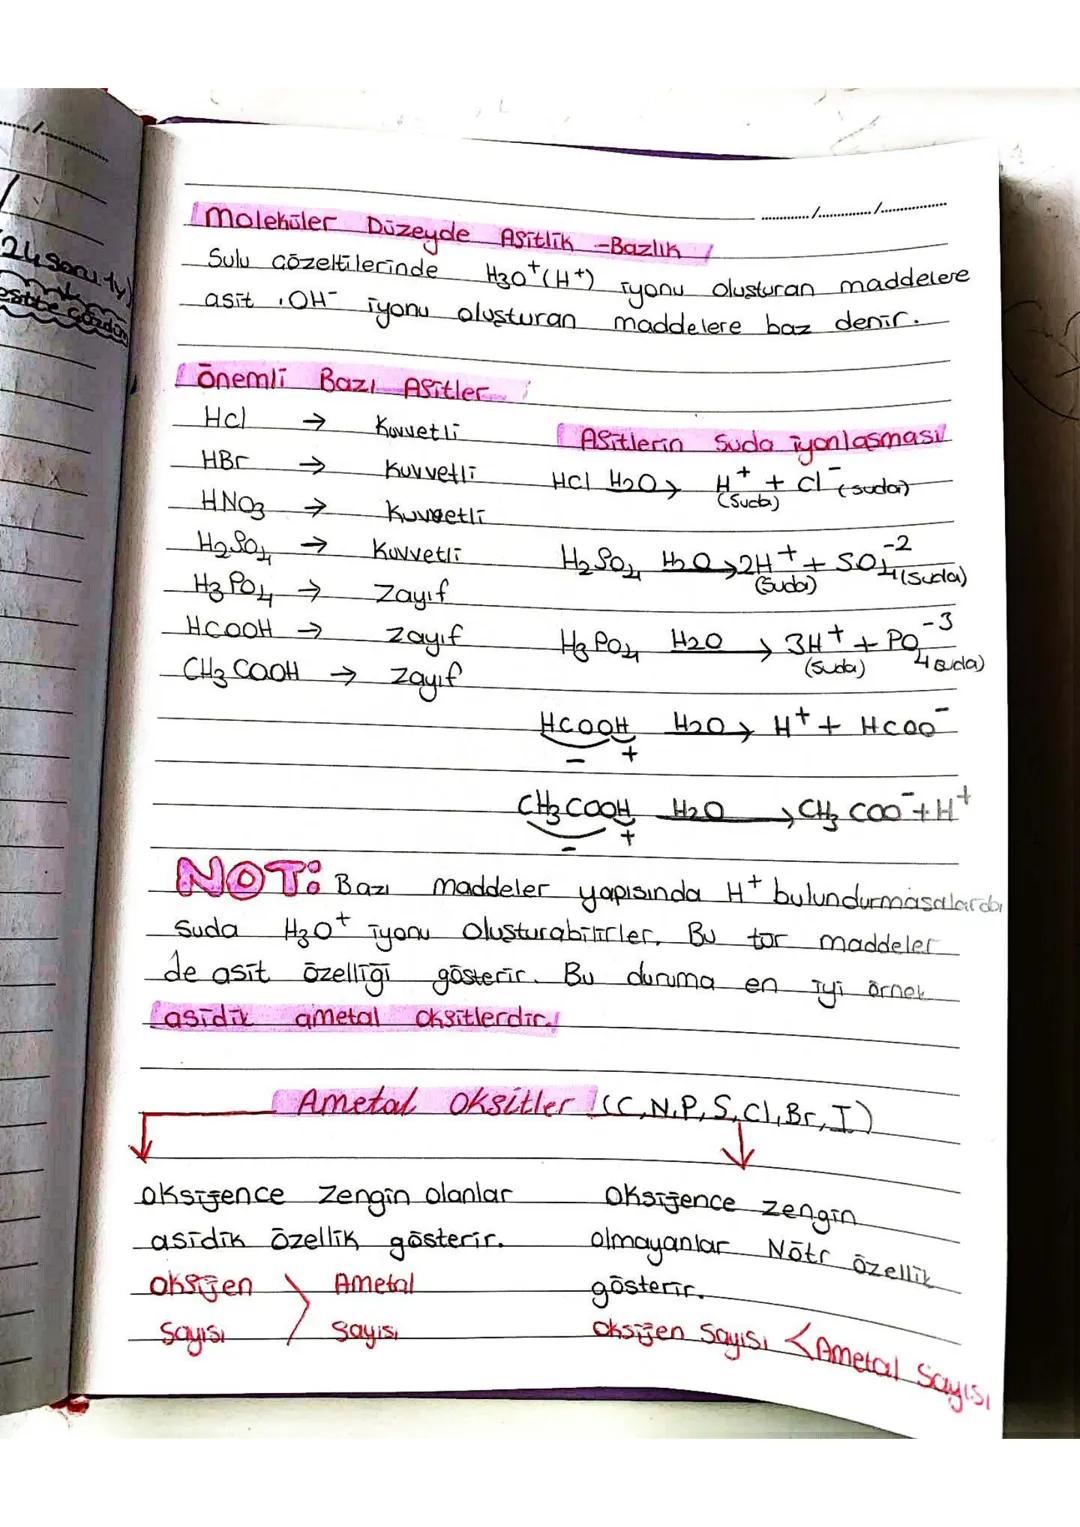 Moleküler Düzeyde Asitlik -Bazlık
Sulu Çözeltilerinde H3O+(H+) iyonu oluşturan maddelere
asit , OH- iyonu oluşturan maddelere baz denir.
Önemli Bazı Asitler
HCl → Kuvvetli
HBr → Kuvvetli
HNO3 → Kuvvetli
H2SO4 → Kuvvetli
H3PO4 → Zayıf
HCOOH → Zayıf
CH3COOH → Zayıf
Asitlerin Suda iyonlaşması
HCl H2O→ H+ (suda) + Cl- (suda)
H2SO4 H2O→ 2H+ (suda) + SO4-2 (suda)
H3PO4 H2O→ 3H+ (suda) + PO4-3 (suda)
HCOOH H2O→ H+ + HCOO-
- +
CH3COOH H2O→ CH3COO- + H+
- +
NOT: Bazı maddeler yapısında H+ bulundurmasalarda
suda H3O+ iyonu oluşturabilirler. Bu tür maddeler
de asit özelliği gösterir. Bu duruma en iyi örnek
asidik ametal oksitlerdir.
Ametal Oksitler (C,N,P,S,Cl,Br,I)
Oksijence Zengin olanlar
asidik özellik gösterir.
Oksijen > Ametal
Sayısı Sayısı
Oksijence zengin
olmayanlar Nötr özellik
gösterir.
Oksijen Sayısı < Ametal Sayısı